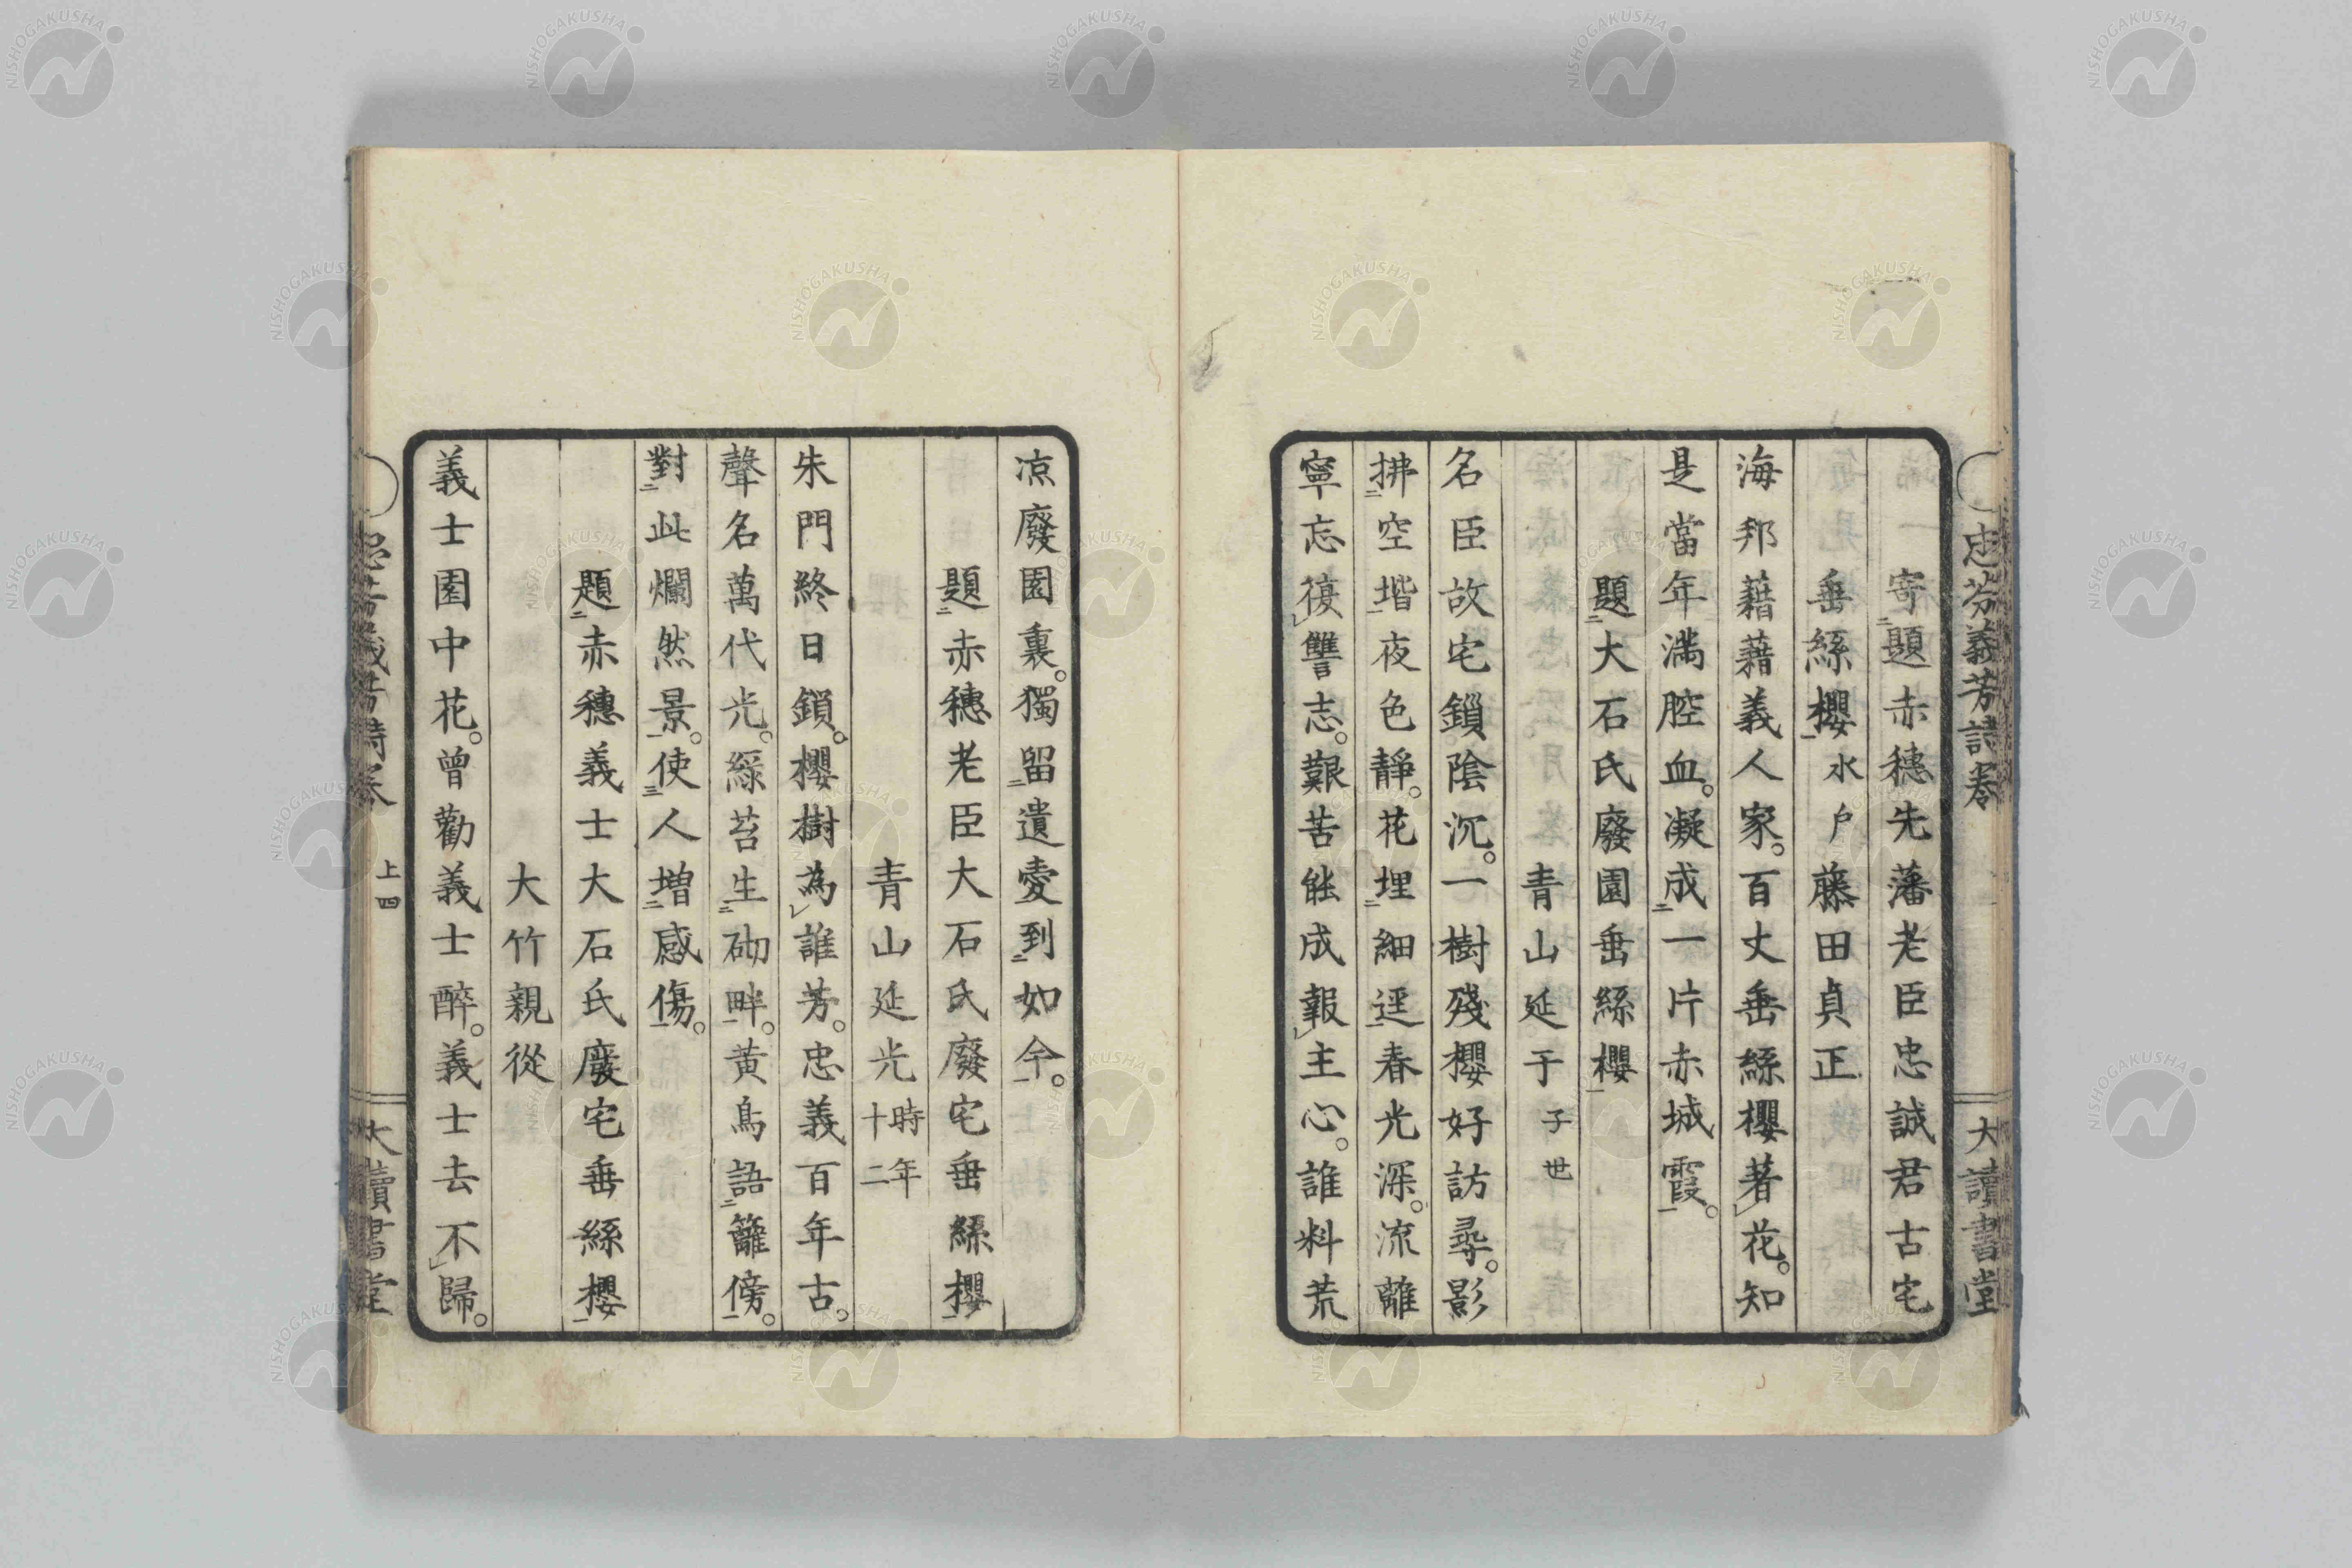 忠芬義芳詩巻
大讀書堂
寄二題赤穗先藩老臣忠誠君古宅
垂絲櫻一水戶藤田貞正
海邦藉藉義人家。百丈垂絲櫻著レ花。知
是當年滿腔血。凝成二一片赤城霞一。
題二大石氏廢園垂絲櫻一
青山延于子世
名臣故宅鎖陰沉。一樹殘櫻好訪尋。影
拂二空堦一夜色靜。花埋二細逕一春光深。流離
寧忘復レ讐志。艱苦能成報レ主心。誰料荒
凉廢園裏。獨留二遺愛到二如今一。
題二赤穗老臣大石氏廢宅垂絲櫻一
青山延光時年十二
朱門終日鎖。櫻樹為レ誰芳。忠義百年古。
聲名萬代光。綠苔生二砌畔一。黃鳥語二籬傍一。
對二此爛然景一。使三人增二感傷一。
題二赤穗義士大石氏廢宅垂絲櫻一
大竹親從
義士園中花。曾勸義士醉。義士去不レ歸。
忠芬義芳詩巻
上四
大讀書堂